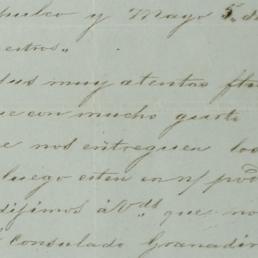 pulco y Mayo 5. de
estros„
sus muy atentas fha
ue con mucho gusto
e nos entreguen los
luego esten en n/ pod
dijimos à Vds. que no
Consulado Granadin